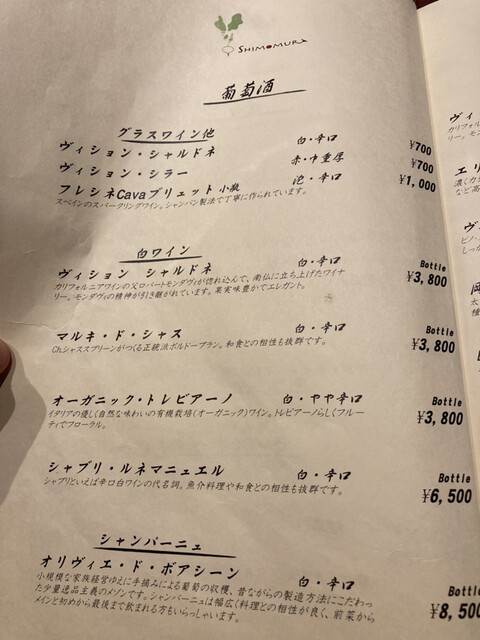 SHIMOMURA
葡萄酒
グラスワイン他
ヴィション・シャルドネ 白・辛口 ¥700
ヴィション・シラー 赤・中重厚 ¥700
フレシネCavaブリュット 小瓶 泡・辛口 ¥1,000
スペインのスパークリングワイン。シャンパン製法で丁寧に作られています。
白ワイン
ヴィション シャルドネ 白・辛口 Bottle ¥3,800
カリフォルニアワインの父ロバートモンダヴィが惚れ込んで、南仏に立ち上げたワイナ
リー。モンダヴィの精神が引き継がれています。果実味豊かでエレガント。
マルキ・ド・シャス 白・辛口 Bottle ¥3,800
Ch.シャススプリーンがつくる正統派ボルドーブラン。和食との相性も抜群です。
オーガニック・トレビアーノ 白・やや辛口 Bottle ¥3,800
イタリアの優しく自然な味わいの有機栽培(オーガニック)ワイン。トレビアーノらしくフルー
ティでフローラル。
シャブリ・ルネマニュエル 白・辛口 Bottle ¥6,500
シャブリといえば辛口白ワインの代名詞。魚介料理や和食との相性も抜群です。
シャンパーニュ
オリヴィエ・ド・ボアシーン 白・辛口 Bottle ¥8,500
小規模な家族経営ゆえに手摘みによる葡萄の収穫、昔ながらの製造方法にこだわっ
た少量逸品主義のメゾンです。シャンパーニュは幅広く料理との相性が良く、前菜から
メインと初めから最後まで飲まれる方もいらっしゃいます。
ヴィ
カリフォル
リー。モン
エリ
濃くカシ
など高
ヴ
ピノ・
しっか
太
種